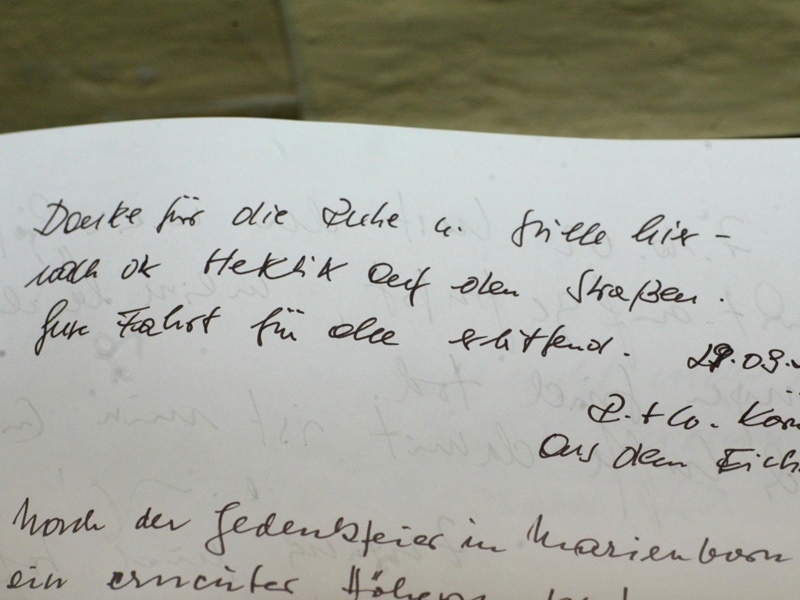 Danke für die Ruhe u. Stille hier –
nach der Hektik auf den Straßen.
Gute Fahrt für alle
.09.
R. + W.
Aus dem Eich
Nach der Gedenkfeier in Marienborn
ein erneuter